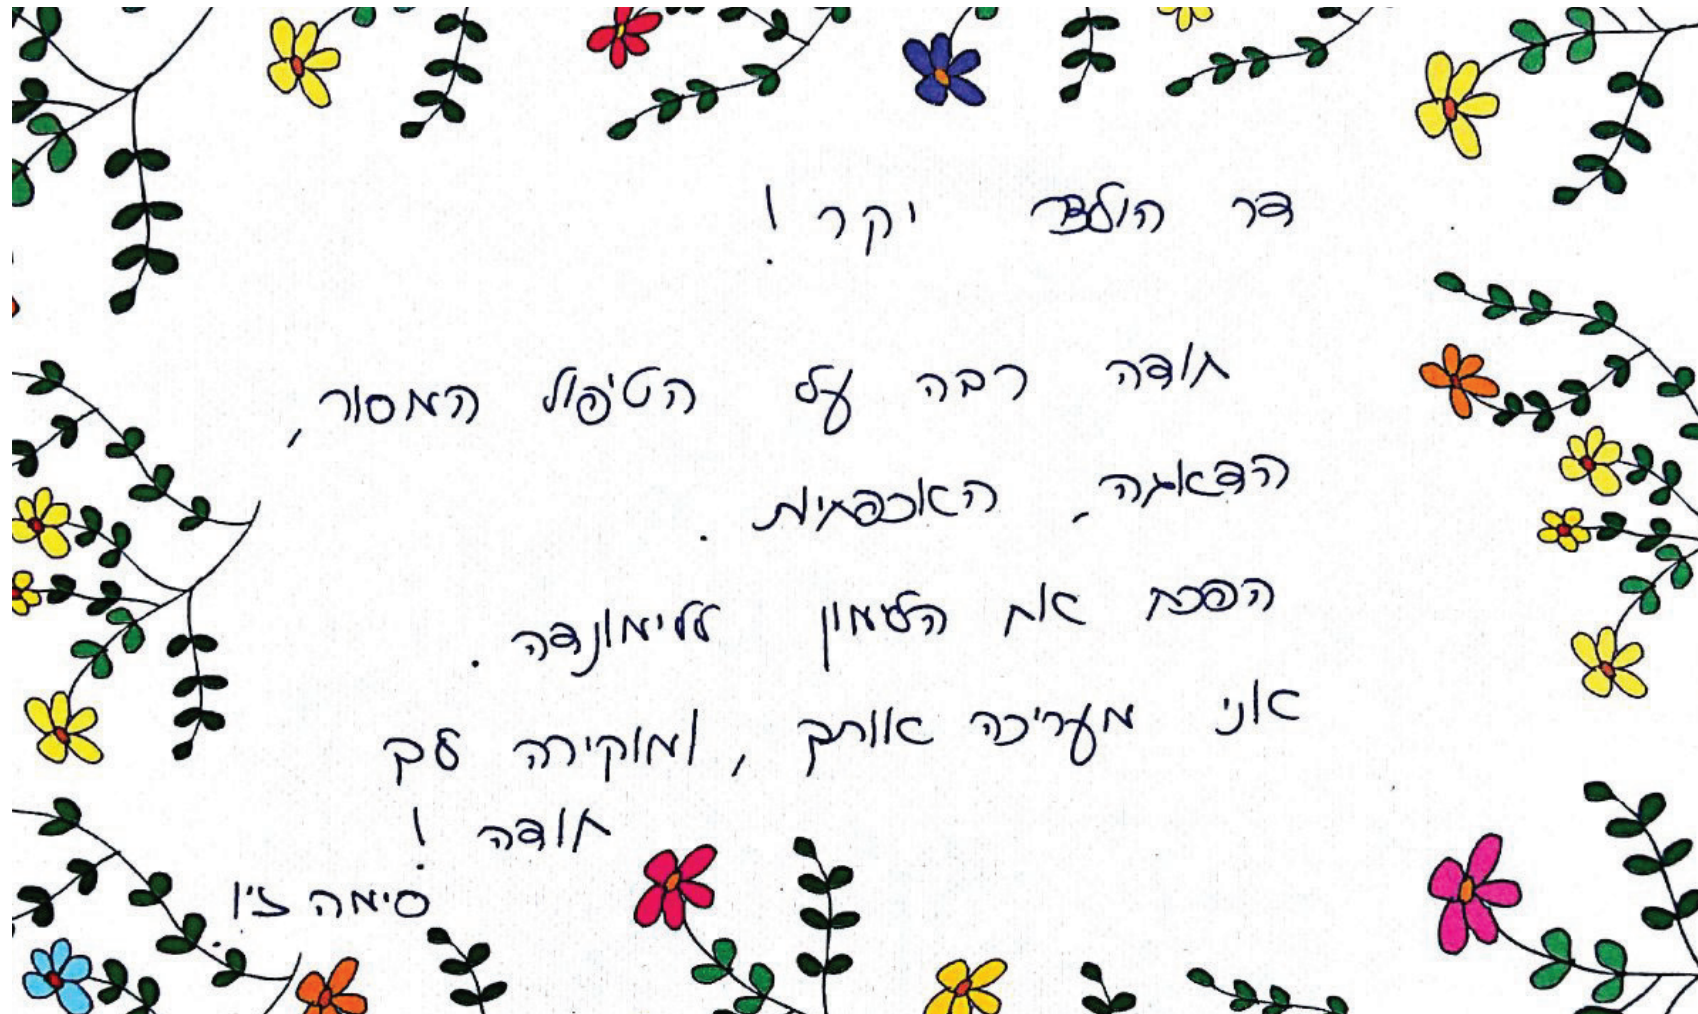 דר הולצר יקר!
תודה רבה על הטיפול המסור,
הדאגה, האכפתיות.
הפכת את הלימון ללימונדה.
אני מעריכה אותך, ומוקירה לך
תודה!
סימה